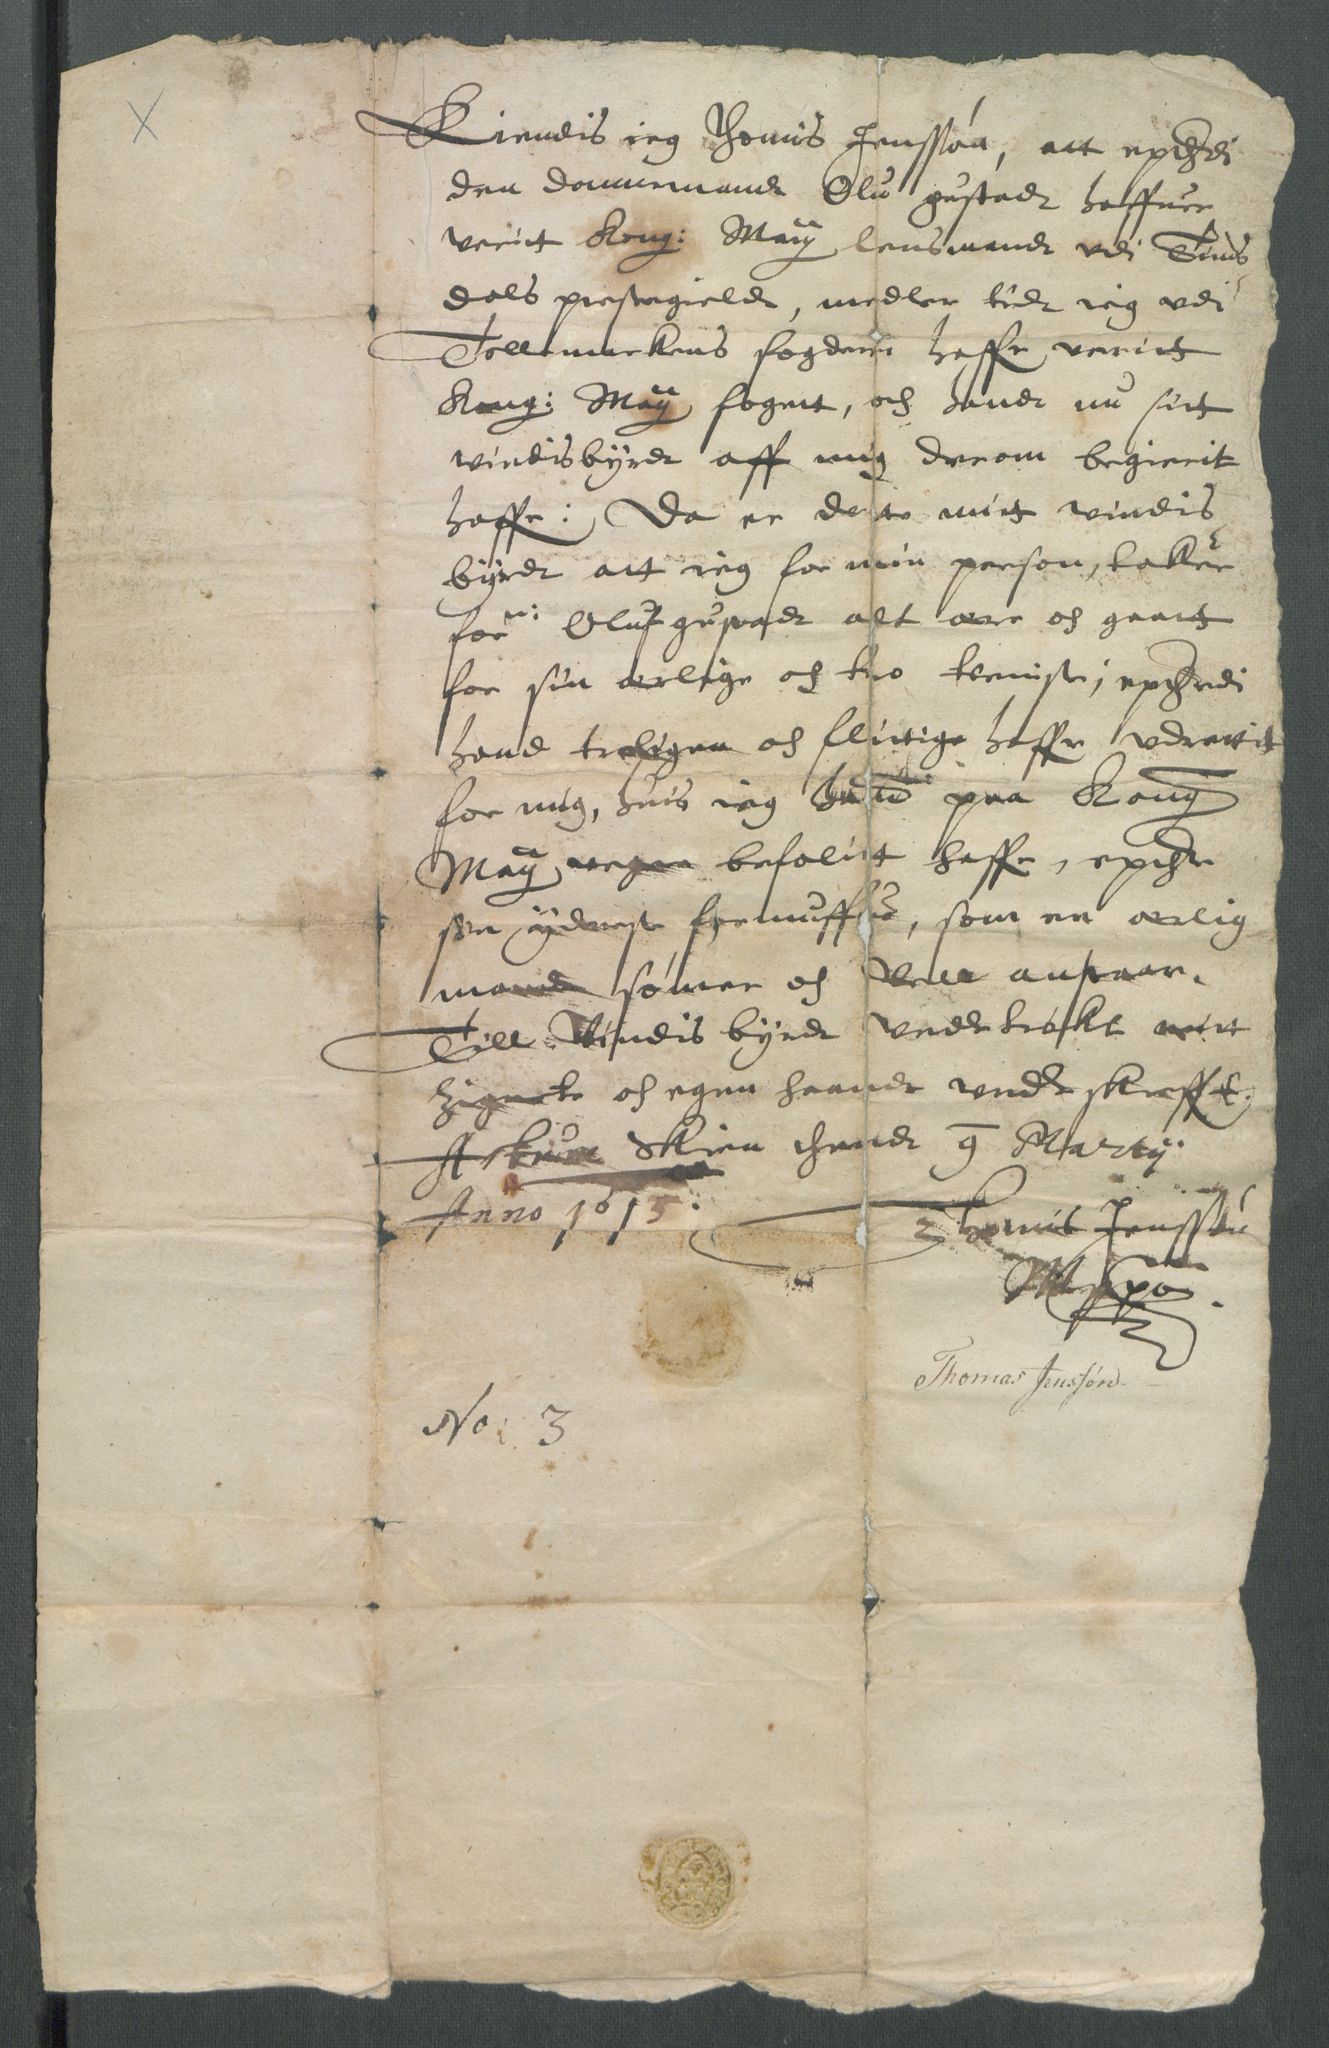 Kiendis ieg Thomis Jenssøn, att epther di
den dannemandt Olu gustadt haffuer
verit Kong: Maÿ lensmandt vdi Tinds
dals prestegieldt, medler tidt ieg vdi
Tellemarkens fogderi haffr veritt
Kong: Maÿ foget, och handt nu sitt
vindisbyrdt aff mig derom begierit
haffr: Da er dette mitt vindis
byrdt att ieg for min person, takker
forn: Oluf gustadt alt ære och gaatt
for sin ærlige och tro tieniste, eptherdi
hand troligen och flittige haffr vdrettit
for mig, huis ieg hannem paa Kong
Maÿ vegne befalitt haffr, epther
sin yderste formuffue, som en ærlig
mandt sømer och vell anstaar.
Till Vindis byrdt vnder trøkt mitt
zignete och egen haandt vnder skrefft.
Actum Skien thendt 9 Martij
Anno 1615.
Thomis Jenssøn
M pp
Thomas Jenssøn
No: 3